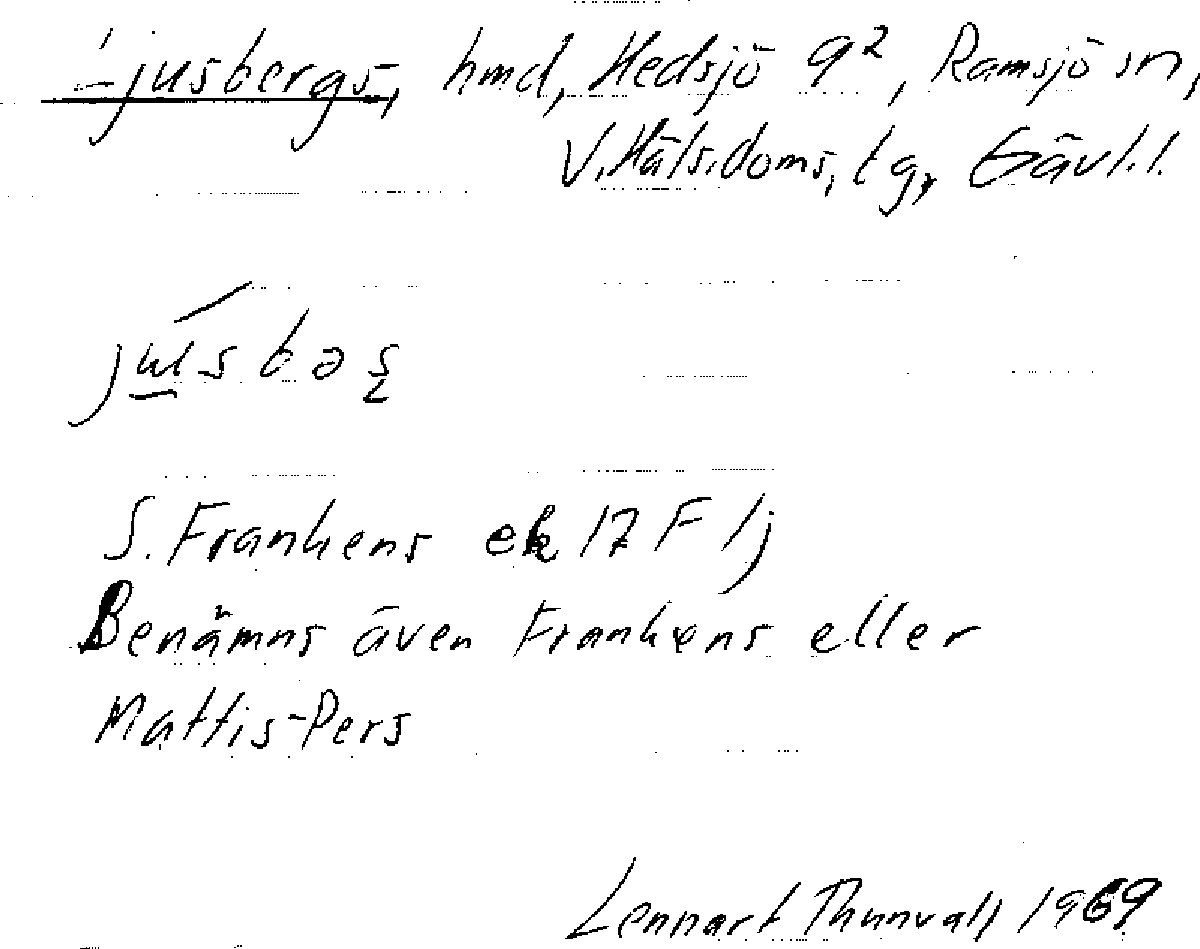 Ljusbergs, hmd, Hedsjö 9², Ramsjö sn,
V. Häls. doms, tg, Gävl. l.
S. Frankens ek 17 F lj
Benämns även Frankens eller
Mattis-Pers
Lennart Thunvall 1969